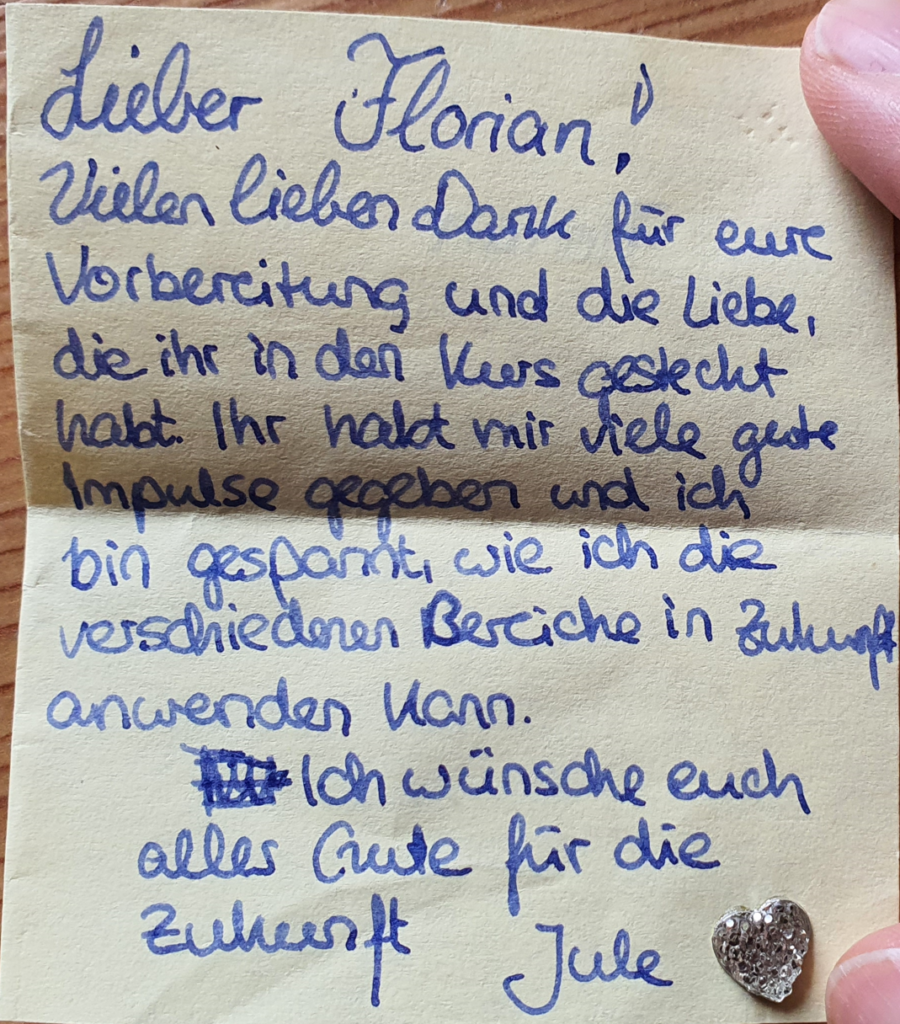 Lieber Florian!
Vielen lieben Dank für eure
Vorbereitung und die Liebe,
die ihr in den Kurs gesteckt
habt. Ihr habt mir viele gute
Impulse gegeben und ich
bin gespannt, wie ich die
verschiedenen Bereiche in Zukunft
anwenden kann.
Ich wünsche euch
alles Gute für die
Zukunft Jule